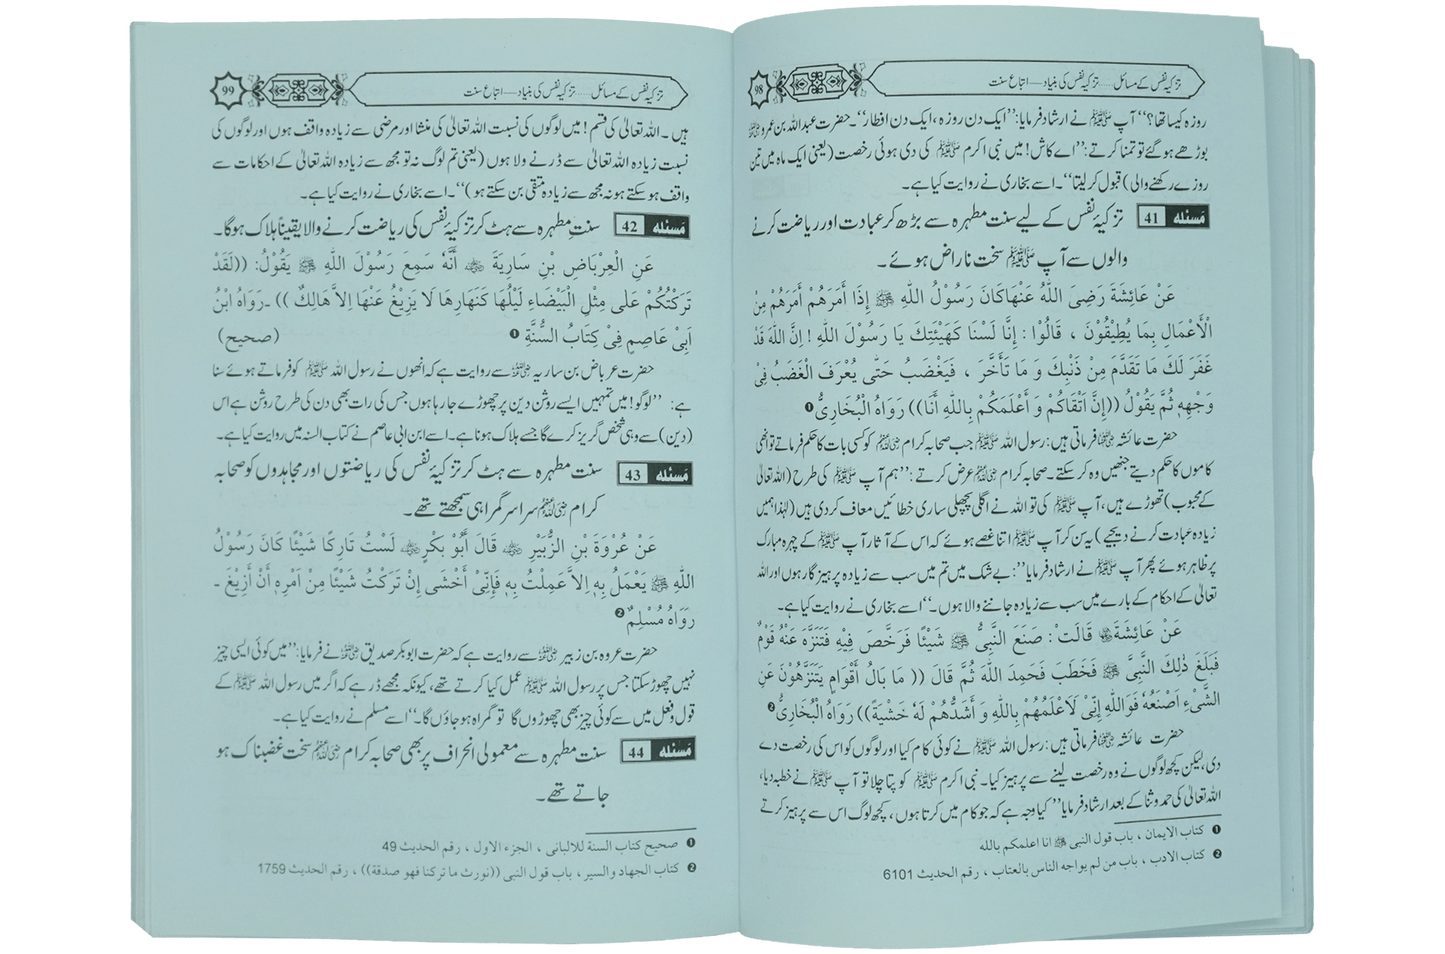 98
تزکیۂ نفس کے مسائل..... تزکیۂ نفس کی بنیاد — اتباع سنت
روزہ کیسا تھا؟‘‘ آپ ﷺ نے ارشاد فرمایا: ’’ایک دن روزہ ، ایک دن افطار‘‘۔ حضرت عبداللہ بن عمرو
بوڑھے ہو گئے تو تمنا کرتے: ’’اے کاش! میں نبی اکرم ﷺ کی دی ہوئی رخصت (یعنی ایک ماہ میں تین
روزے رکھنے والی) قبول کر لیتا‘‘۔ اسے بخاری نے روایت کیا ہے۔
مَسئله 41 تزکیۂ نفس کے لیے سنت مطہرہ سے بڑھ کر عبادت اور ریاضت کرنے
والوں سے آپ ﷺ سخت ناراض ہوئے۔
عَنْ عَائِشَةَ رَضِیَ اللّٰهُ عَنْهَا كَانَ رَسُوْلُ اللّٰهِ ﷺ إِذَا أَمَرَهُمْ أَمَرَهُمْ مِنَ
الْأَعْمَالِ بِمَا يُطِيْقُوْنَ ، قَالُوْا : إِنَّا لَسْنَا كَهَيْئَتِكَ يَا رَسُوْلَ اللّٰهِ ! اِنَّ اللّٰهَ قَدْ
غَفَرَ لَكَ مَا تَقَدَّمَ مِنْ ذَنْبِكَ وَ مَا تَأَخَّرَ ، فَيَغْضَبُ حَتّٰى يُعْرَفَ الْغَضَبُ فِیْ
وَجْهِهٖ ثُمَّ يَقُوْلُ ((إِنَّ اَتْقَاكُمْ وَ أَعْلَمَكُمْ بِاللّٰهِ أَنَا)) رَوَاهُ الْبُخَارِیُّ ❶
حضرت عائشہ فرماتی ہیں: رسول اللہ ﷺ جب صحابہ کرام کو کسی بات کا حکم فرماتے تو انہی
کاموں کا حکم دیتے جنھیں وہ کر سکتے۔ صحابہ کرام عرض کرتے : ’’ہم آپ ﷺ کی طرح (اللہ تعالیٰ
کے محبوب) تھوڑے ہیں، آپ ﷺ کی تو اللہ نے اگلی پچھلی ساری خطائیں معاف کر دی ہیں (لہٰذا ہمیں
زیادہ عبادت کرنے دیجیے) یہ سن کر آپ ﷺ اتنا غصے ہوئے کہ اس کے آثار آپ ﷺ کے چہرہ مبارک
پر ظاہر ہوئے پھر آپ ﷺ نے ارشاد فرمایا: ’’بے شک میں تم میں سب سے زیادہ پرہیز گار ہوں اور اللہ
تعالیٰ کے احکام کے بارے میں سب سے زیادہ جاننے والا ہوں۔‘‘ اسے بخاری نے روایت کیا ہے۔
عَنْ عَائِشَةَ قَالَتْ: صَنَعَ النَّبِیُّ ﷺ شَيْئًا فَرَخَّصَ فِيْهِ فَتَنَزَّهَ عَنْهُ قَوْمٌ
فَبَلَغَ ذٰلِكَ النَّبِیَّ ﷺ فَخَطَبَ فَحَمِدَ اللّٰهَ ثُمَّ قَالَ (( مَا بَالُ أَقْوَامٍ يَتَنَزَّهُوْنَ عَنِ
الشَّیْءِ اَصْنَعُهٗ فَوَاللّٰهِ إِنِّیْ لَاَعْلَمُهُمْ بِاللّٰهِ وَ أَشَدُّهُمْ لَهٗ خَشْيَةً)) رَوَاهُ الْبُخَارِیُّ ❷
حضرت عائشہ فرماتی ہیں: رسول اللہ ﷺ نے کوئی کام کیا اور لوگوں کو اس کی رخصت دے
دی، لیکن کچھ لوگوں نے وہ رخصت لینے سے پرہیز کیا۔ نبی اکرم ﷺ کو پتا چلا تو آپ ﷺ نے خطبہ دیا،
اللہ تعالیٰ کی حمد و ثنا کے بعد ارشاد فرمایا ’’کیا وجہ ہے کہ جو کام میں کرتا ہوں ، کچھ لوگ اس سے پرہیز کرتے
❶ كتاب الايمان ، باب قول النبی ﷺ انا اعلمكم بالله
❷ كتاب الادب ، باب من لم يواجه الناس بالعتاب ، رقم الحديث 6101
99
تزکیۂ نفس کے مسائل..... تزکیۂ نفس کی بنیاد — اتباع سنت
ہیں۔ اللہ تعالیٰ کی قسم! میں لوگوں کی نسبت اللہ تعالیٰ کی منشا اور مرضی سے زیادہ واقف ہوں اور لوگوں کی
نسبت زیادہ اللہ تعالیٰ سے ڈرنے ولا ہوں (یعنی تم لوگ نہ تو مجھ سے زیادہ اللہ تعالیٰ کے احکامات سے
واقف ہو سکتے ہو نہ مجھ سے زیادہ متقی بن سکتے ہو)‘‘۔ اسے بخاری نے روایت کیا ہے۔
مَسئله 42 سنتِ مطہرہ سے ہٹ کر تزکیۂ نفس کی ریاضت کرنے والا یقیناً ہلاک ہوگا۔
عَنِ الْعِرْبَاضِ بْنِ سَارِيَةَ أَنَّهُ سَمِعَ رَسُوْلَ اللّٰهِ ﷺ يَقُوْلُ: ((لَقَدْ
تَرَكْتُكُمْ عَلٰى مِثْلِ الْبَيْضَاءِ لَيْلُهَا كَنَهَارِهَا لَا يَزِيْغُ عَنْهَا اِلاَّ هَالِكٌ )) ۔رَوَاهُ ابْنُ
اَبِیْ عَاصِمٍ فِیْ كِتَابُ السُّنَّةِ ❶ (صحیح)
حضرت عرباض بن ساریہ سے روایت ہے کہ انھوں نے رسول اللہ ﷺ کو فرماتے ہوئے سنا
ہے: ’’لوگو! میں تمہیں ایسے روشن دین پر چھوڑے جا رہا ہوں جس کی رات بھی دن کی طرح روشن ہے اس
(دین) سے وہی شخص گریز کرے گا جسے ہلاک ہونا ہے۔ اسے ابن ابی عاصم نے کتاب السنہ میں روایت کیا ہے۔
مَسئله 43 سنت مطہرہ سے ہٹ کر تزکیۂ نفس کی ریاضتوں اور مجاہدوں کو صحابہ
کرام سراسر گمراہی سمجھتے تھے۔
عَنْ عُرْوَةَ بْنِ الزُّبَيْرِ قَالَ أَبُوْ بَكْرٍ لَسْتُ تَارِكًا شَيْئًا كَانَ رَسُوْلُ
اللّٰهِ ﷺ يَعْمَلُ بِهٖ اِلاَّ عَمِلْتُ بِهٖ فَإِنِّیْ أَخْشٰى إِنْ تَرَكْتُ شَيْئًا مِنْ اَمْرِهٖ أَنْ أَزِيْغَ ۔
رَوَاهُ مُسْلِمٌ ❷
حضرت عروہ بن زبیر سے روایت ہے کہ حضرت ابوبکر صدیق نے فرمایا: ’’میں کوئی ایسی چیز
نہیں چھوڑ سکتا جس پر رسول اللہ ﷺ عمل کیا کرتے تھے، کیونکہ مجھے ڈر ہے کہ اگر میں رسول اللہ ﷺ کے
قول و فعل میں سے کوئی چیز بھی چھوڑوں گا تو گمراہ ہو جاؤں گا۔‘‘ اسے مسلم نے روایت کیا ہے۔
مَسئله 44 سنت مطہرہ سے معمولی انحراف پر بھی صحابہ کرام سخت غضبناک ہو
جاتے تھے۔
❶ صحيح كتاب السنة للالبانی ، الجزء الاول ، رقم الحديث 49
❷ كتاب الجهاد والسير ، باب قول النبی ((نورث ما تركنا فهو صدقة)) ، رقم الحديث 1759